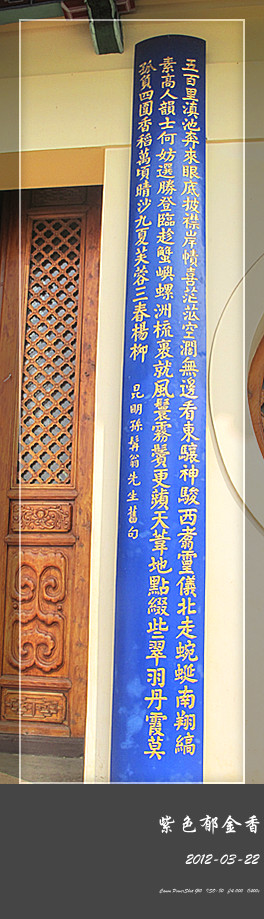 五百里滇池奔來眼底披襟岸幘喜茫茫空濶無邊看東驤神駿西翥靈儀北走蜿蜒南翔縞
素高人韻士何妨選勝登臨趁蟹嶼螺洲梳裹就風鬟霧鬢更蘋天葦地點綴些翠羽丹霞莫
孤負四圍香稻萬頃晴沙九夏芙蓉三春楊柳
昆明孫髯翁先生舊句
紫色郁金香
2012-03-22